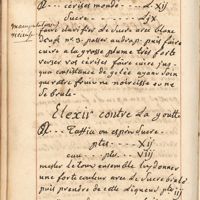 ℞. cerises mondé ... ℔ Xij
Sucre ... ℔ jx
faire clarifier le Sucre avec blanc
d'euf n°3. passer au drap. puis faire cuire
a la grosse plume tres forte
verser vos cerises faire cuire jus-
quen consistance de gelée ayant soin
que votre feu ne noircisse ou ne
brule.
Elexir contre la goutte
℞. Taffia ou esprit Sucre
ptes ... Xij
eau ... pte VIIj
mesler le tout ensemble luy donner
une forte couleur avec de Sucre brulé
puis prendre de cette liqueur pte iij